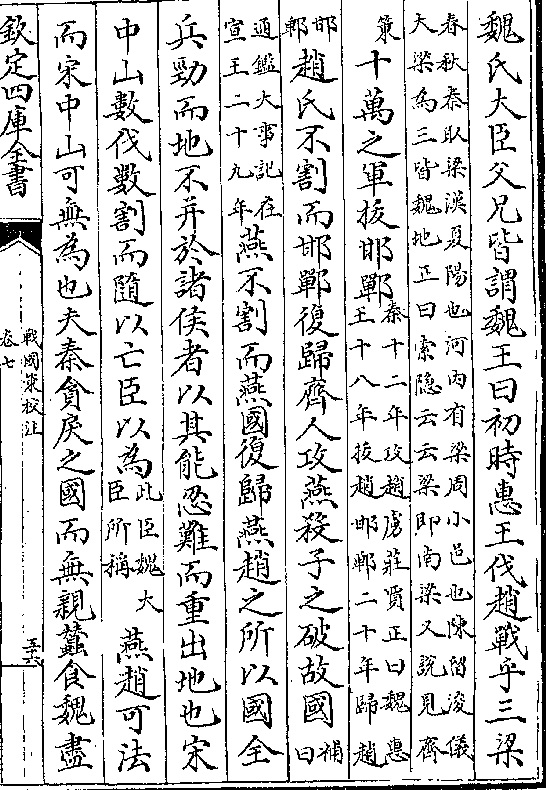 魏氏大臣父兄皆謂魏王曰初時惠王伐趙戰乎三梁
春秋秦取梁漢夏陽也河内有梁周小邑也陳留浚儀
大梁為三皆魏地正曰索隱云云梁即南梁又說見齊
策十萬之軍拔邯鄲秦十二年攻趙虜莊賈正曰魏惠
王十八年拔趙邯鄲二十年歸趙
邯鄲趙氏不割而邯鄲復歸齊人攻燕殺子之破故國補曰
通鑑大事記在
宣王二十九年燕不割而燕國復歸燕趙之所以國全
兵勁而地不并於諸侯者以其能忍難而重出地也宋
中山數伐數割而隨以亡臣以為此臣魏大臣所稱燕趙可法
而宋中山可無為也夫秦貪戾之國而無親蠶食魏盡
欽定四庫全書
戰國策校注
卷七